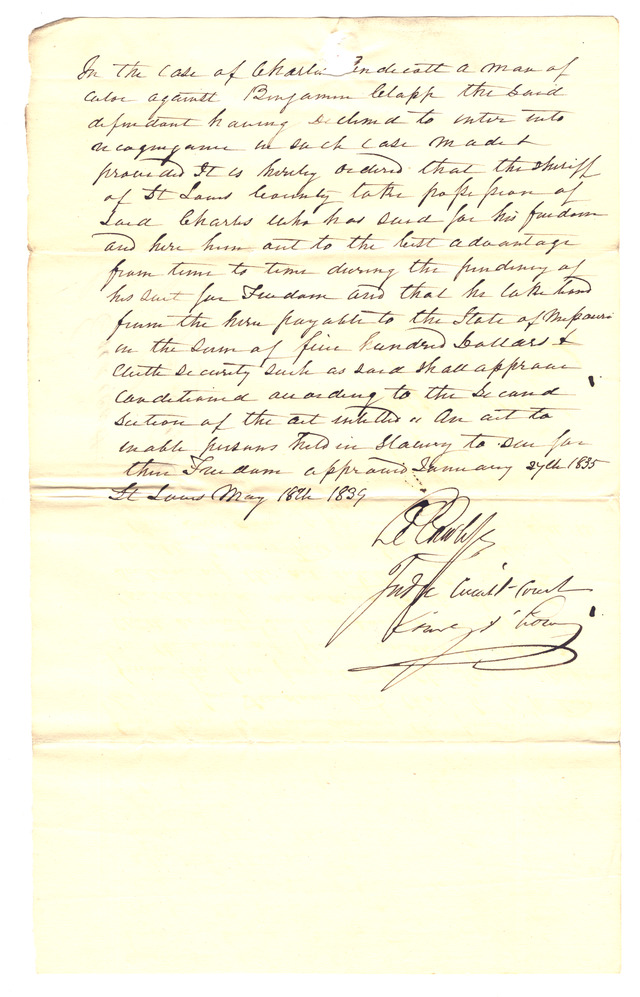 In the case of Charles Endicott a man of
color against Benjamin Clapp the said
defendant having declined to enter into
recognizance in such case made &
provided It is hereby ordered that the sheriff
of St Louis County take possession of
said Charles who has sued for his freedom
and hire him out to the best advantage
from time to time during the pendency of
his suit for Freedom and that he take bond
from the hirer payable to the State of Missouri
in the sum of five hundred Dollars &
with security such as said shall approve
conditioned according to the second
section of the act intitled " An act to
enable persons held in slavery to sue for
their Freedom approved January 27th 1835
St Louis May 18th 1839
Judge Circuit Court